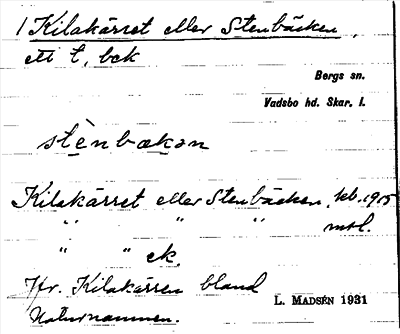 1 Kilakärret eller Stenbäcken,
ett t, bck
Bergs sn.
Vadsbo hd. Skar. l.
stènbækan
Kilakärret eller Stenbäcken, kb. 1915
" " " mtl.
" " ek.
Jfr. Kilakärren bland
Naturnamnen.
L. MADSÉN 1931